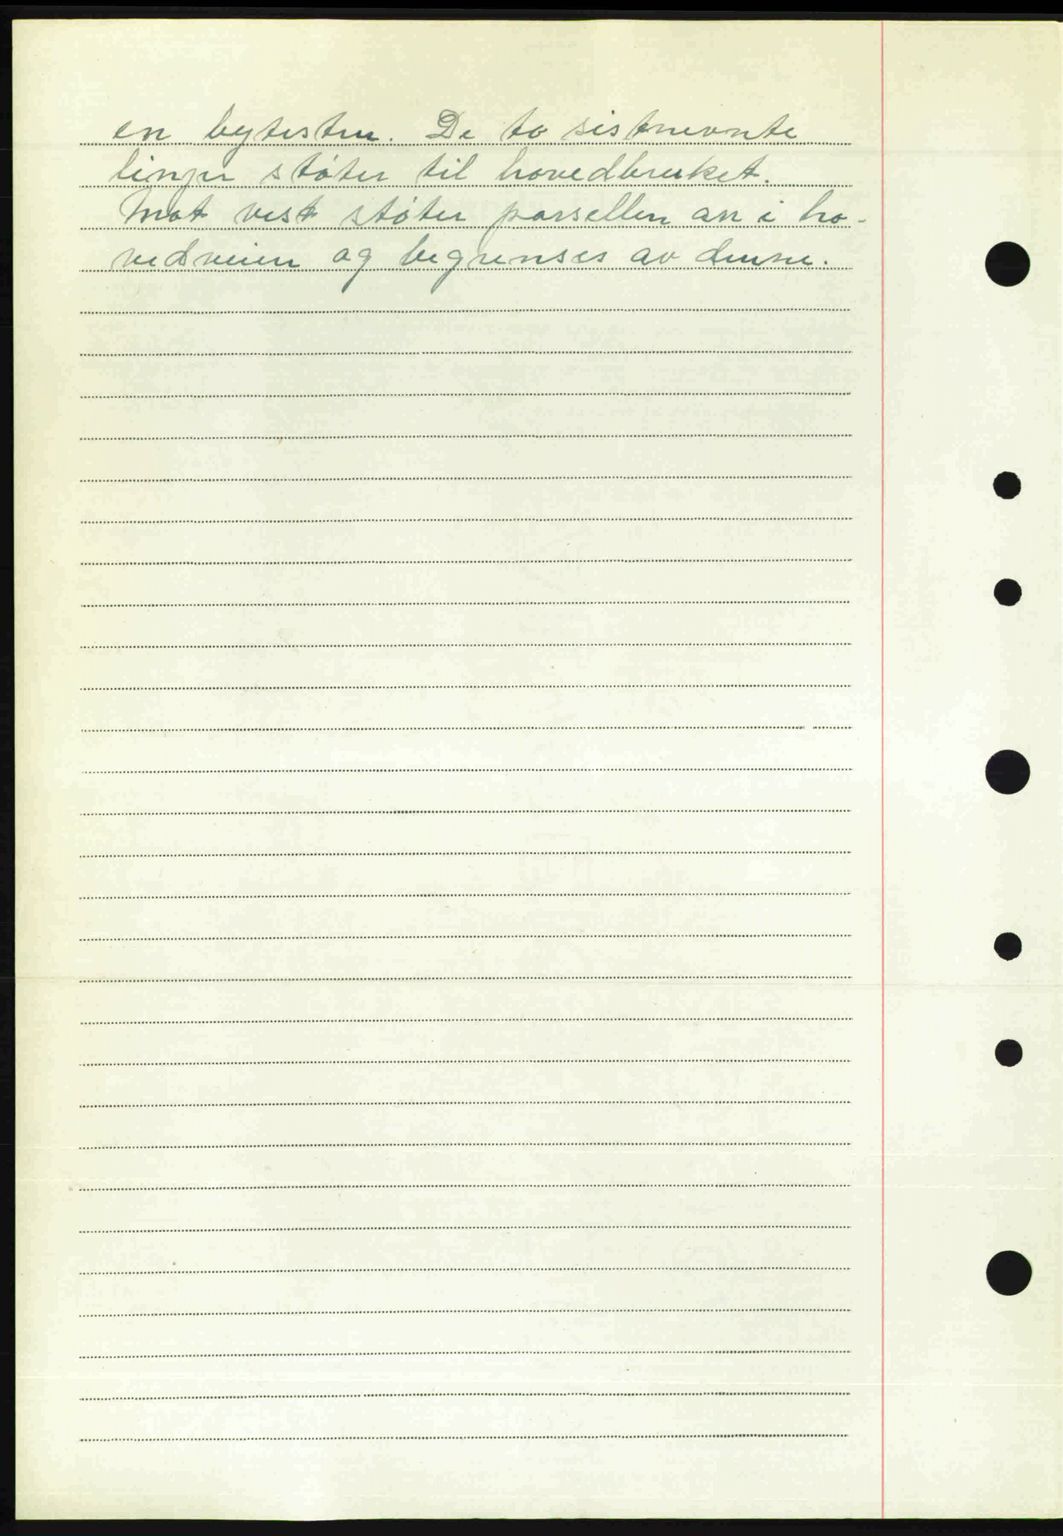 en bytesten. De to sistnevnte
linjer støter til hovedbruket.
Mot vest støter parsellen an i ho-
vedveien og begrenses av denne.